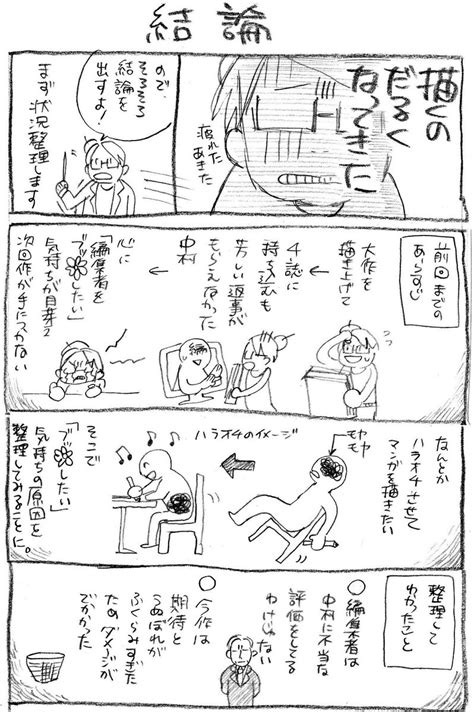 結論
描くの
だるく
なってきた
疲れた
あきた
ので、
そろそろ
結論を
出すよ!
まず状況整理します
前回までの
あらすじ
大作を
描き上げて
4誌に
持ち込むも
芳しい返事が
もらえなかった
中村
心に
「編集者を
ブッ❀したい」
気持ちが目芽え
次回作が手につかない
編
なんとか
ハラオチさせて
マンガを描きたい
モヤ
モヤ
ハラオチのイメージ
そこで
「ブッ❀したい」
気持ちの原因を
整理してみることに。
整理して
わかったこと
○編集者は
中村に不当な
評価をしてる
わけじゃない
○今作は
期待と
うぬぼれが
ふくらみすぎた
ためダメージが
でかかった